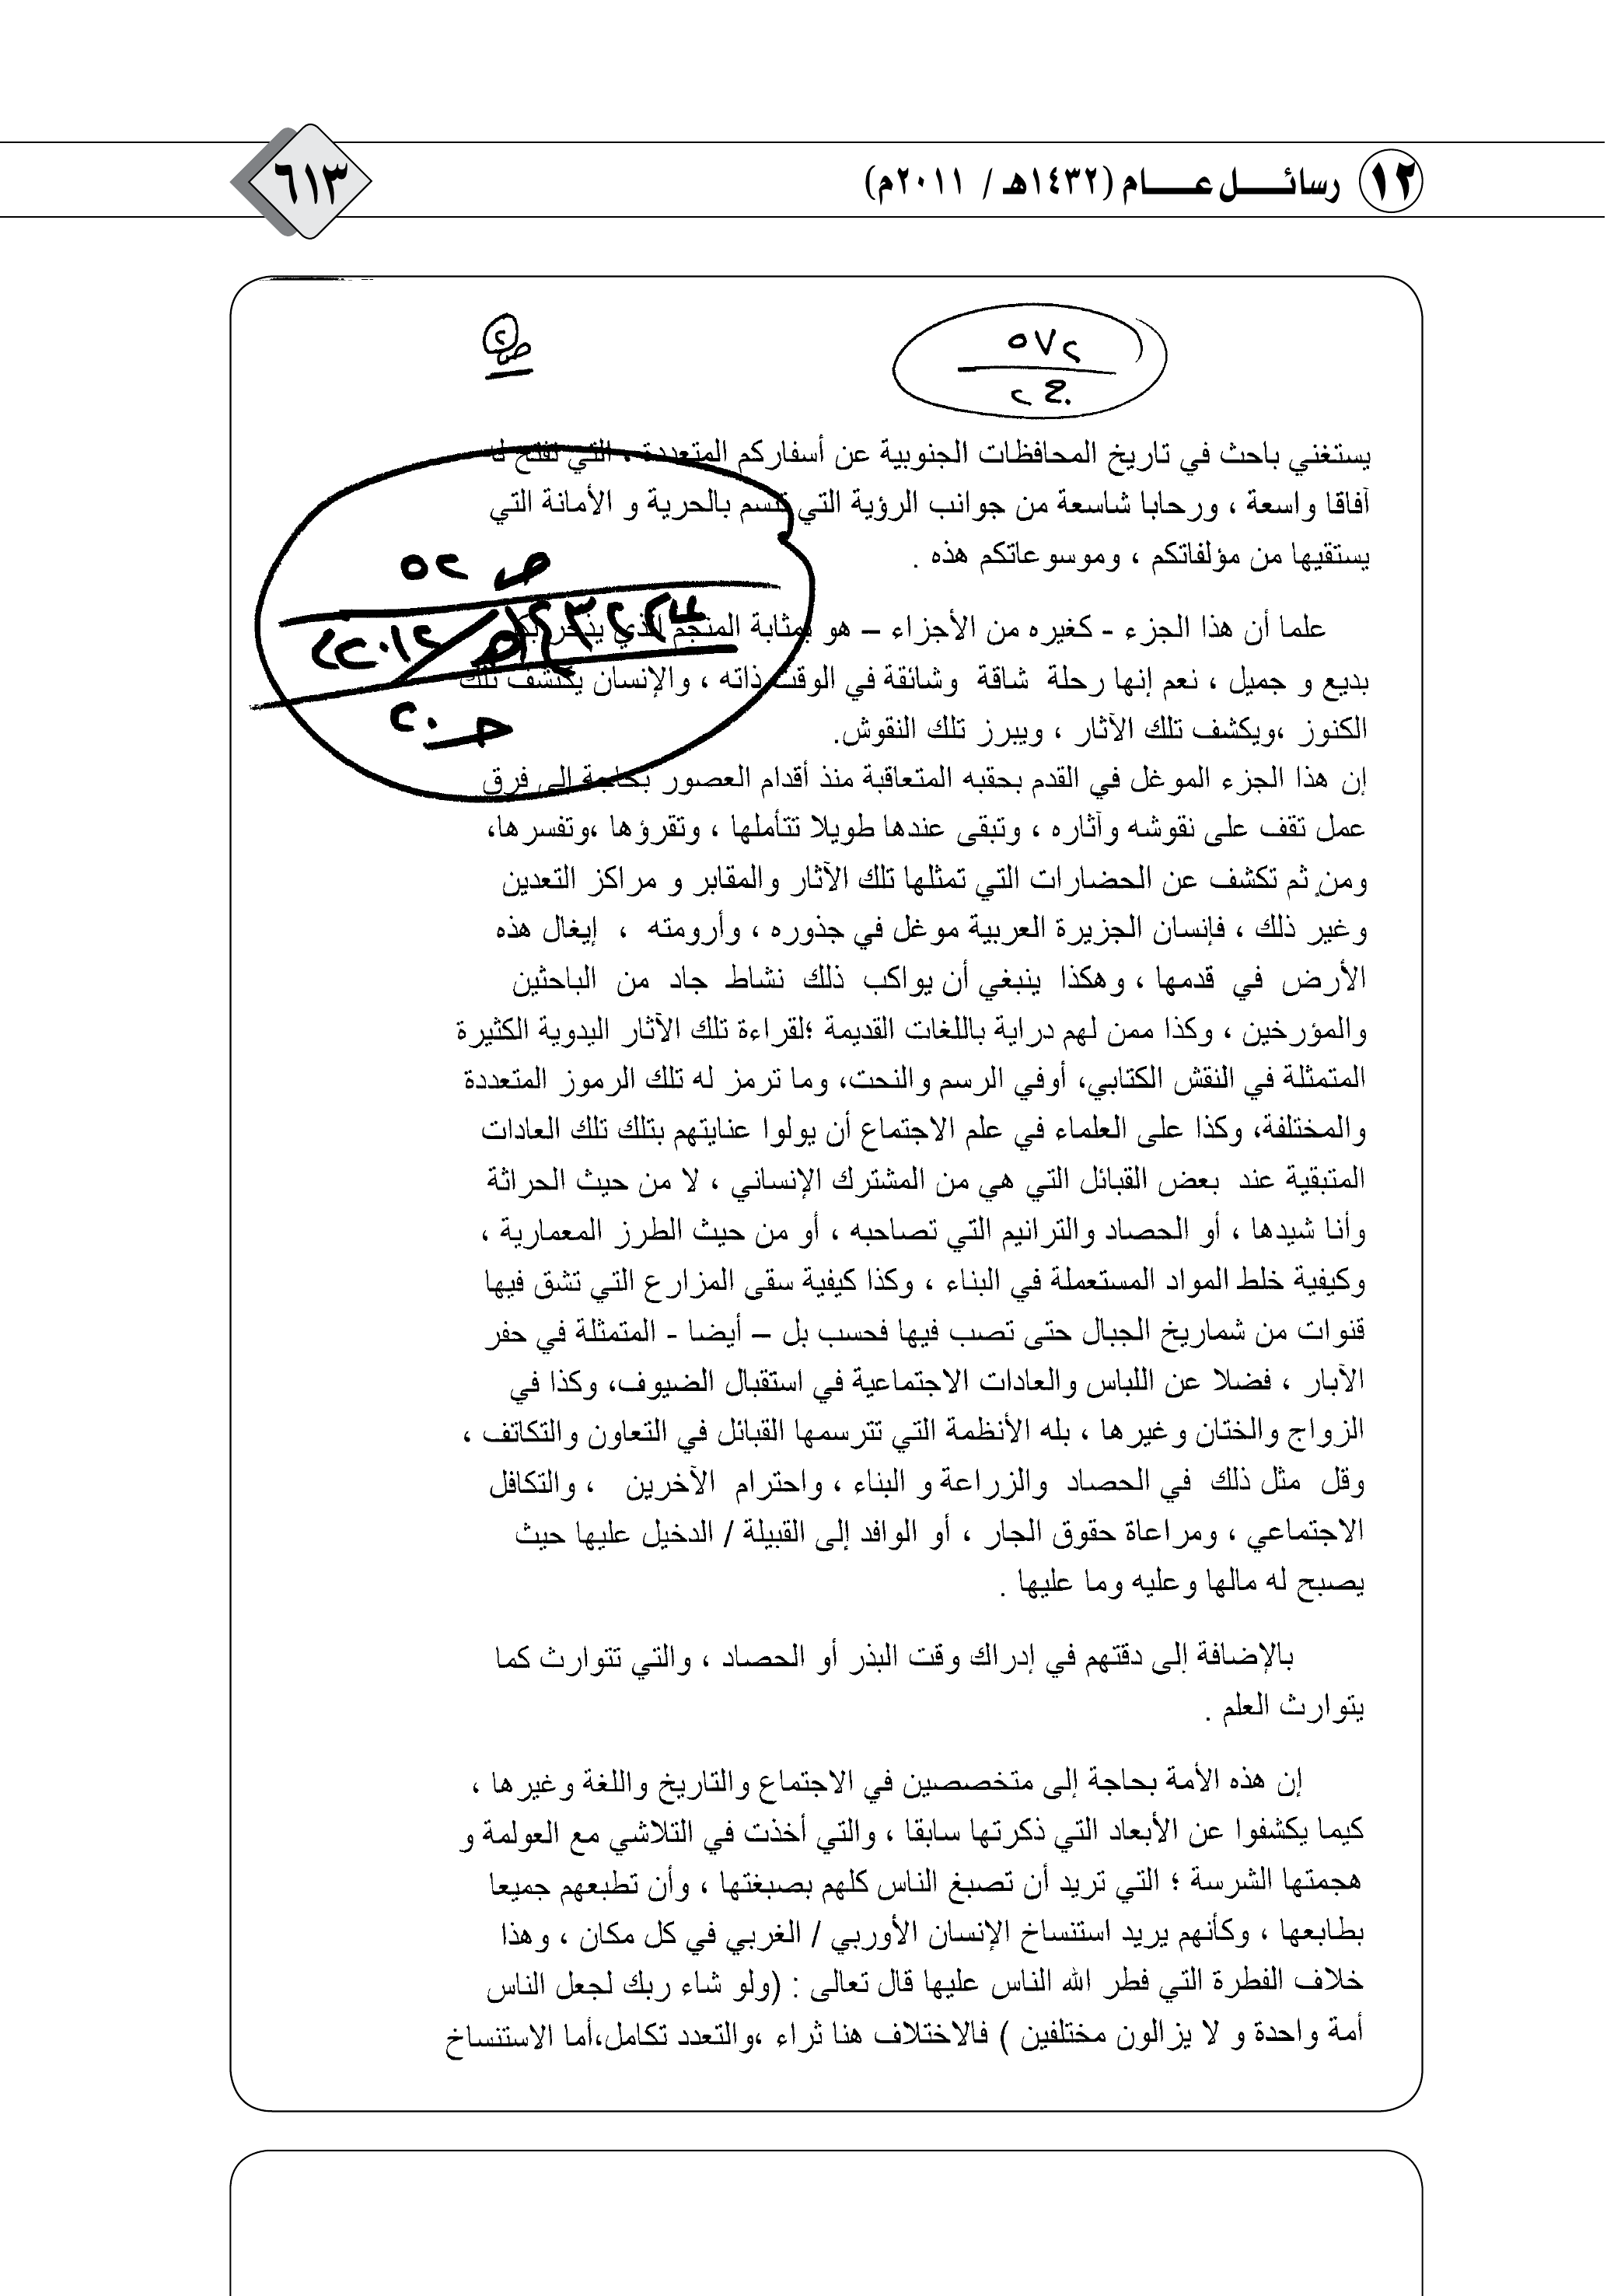 ١٢ رسائل عام (١٤٣٢هـ / ٢٠١١م) ٦١٣
٥٧٢
ج٢
ص٢
يستغني باحث في تاريخ المحافظات الجنوبية عن أسفاركم المتعددة ، التي تفتح له
آفاقا واسعة ، ورحابا شاسعة من جوانب الرؤية التي تتسم بالحرية و الأمانة التي
يستقيها من مؤلفاتكم ، وموسوعاتكم هذه .
ص ٥٢
ج٢٠
علما أن هذا الجزء - كغيره من الأجزاء – هو بمثابة المنجم الذي يذخر بكل
بديع و جميل ، نعم إنها رحلة شاقة وشائقة في الوقت ذاته ، والإنسان يكتشف تلك
الكنوز ،ويكشف تلك الآثار ، ويبرز تلك النقوش.
إن هذا الجزء الموغل في القدم بحقبه المتعاقبة منذ أقدام العصور بحاجة إلى فرق
عمل تقف على نقوشه وآثاره ، وتبقى عندها طويلا تتأملها ، وتقرؤها ،وتفسرها،
ومن ثم تكشف عن الحضارات التي تمثلها تلك الآثار والمقابر و مراكز التعدين
وغير ذلك ، فإنسان الجزيرة العربية موغل في جذوره ، وأرومته ، إيغال هذه
الأرض في قدمها ، وهكذا ينبغي أن يواكب ذلك نشاط جاد من الباحثين
والمؤرخين ، وكذا ممن لهم دراية باللغات القديمة ؛لقراءة تلك الآثار اليدوية الكثيرة
المتمثلة في النقش الكتابي، أوفي الرسم والنحت، وما ترمز له تلك الرموز المتعددة
والمختلفة، وكذا على العلماء في علم الاجتماع أن يولوا عنايتهم بتلك تلك العادات
المتبقية عند بعض القبائل التي هي من المشترك الإنساني ، لا من حيث الحراثة
وأنا شيدها ، أو الحصاد والترانيم التي تصاحبه ، أو من حيث الطرز المعمارية ،
وكيفية خلط المواد المستعملة في البناء ، وكذا كيفية سقى المزارع التي تشق فيها
قنوات من شماريخ الجبال حتى تصب فيها فحسب بل – أيضا - المتمثلة في حفر
الآبار ، فضلا عن اللباس والعادات الاجتماعية في استقبال الضيوف، وكذا في
الزواج والختان وغيرها ، بله الأنظمة التي تترسمها القبائل في التعاون والتكاتف ،
وقل مثل ذلك في الحصاد والزراعة و البناء ، واحترام الآخرين ، والتكافل
الاجتماعي ، ومراعاة حقوق الجار ، أو الوافد إلى القبيلة / الدخيل عليها حيث
يصبح له مالها وعليه وما عليها .
بالإضافة إلى دقتهم في إدراك وقت البذر أو الحصاد ، والتي تتوارث كما
يتوارث العلم .
إن هذه الأمة بحاجة إلى متخصصين في الاجتماع والتاريخ واللغة وغيرها ،
كيما يكشفوا عن الأبعاد التي ذكرتها سابقا ، والتي أخذت في التلاشي مع العولمة و
هجمتها الشرسة ؛ التي تريد أن تصبغ الناس كلهم بصبغتها ، وأن تطبعهم جميعا
بطابعها ، وكأنهم يريد استنساخ الإنسان الأوربي / الغربي في كل مكان ، وهذا
خلاف الفطرة التي فطر الله الناس عليها قال تعالى : (ولو شاء ربك لجعل الناس
أمة واحدة و لا يزالون مختلفين ) فالاختلاف هنا ثراء ،والتعدد تكامل،أما الاستنساخ